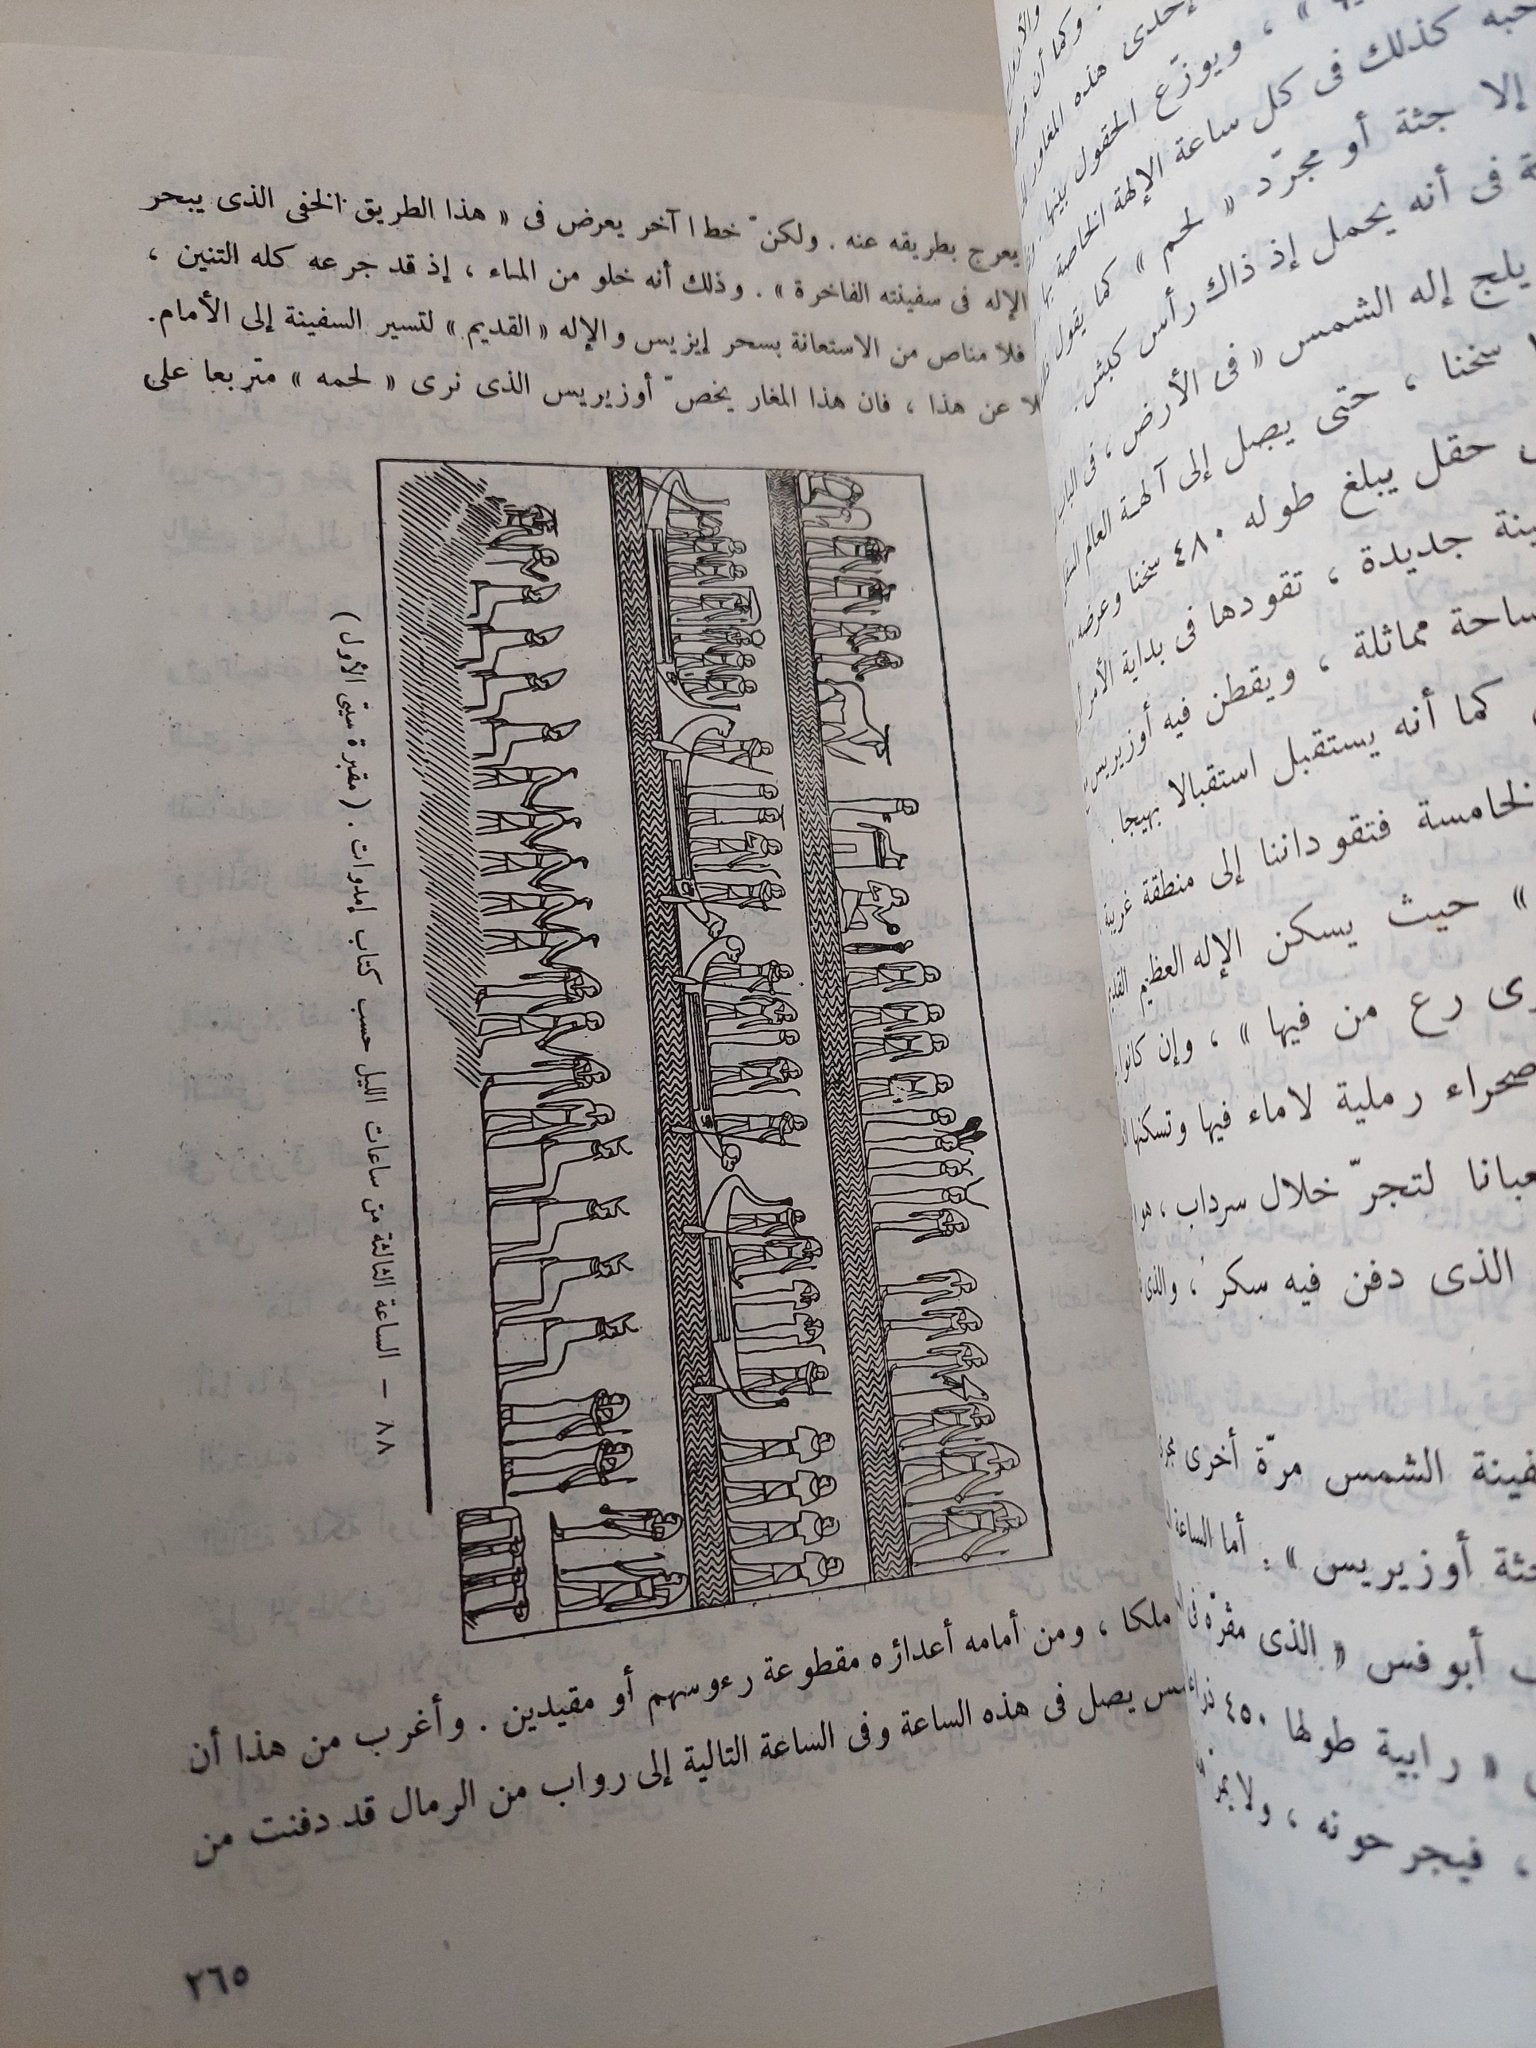 يعرج بطريقه عنه . ولكنّ خطا آخر يعرض فى « هذا الطريق الخفى الذى يبحر
الإله فى سفينته الفاخرة » . وذلك أنه خلو من الماء ، إذ قد جرعه كله التنين ،
فلا مناص من الاستعانة بسحر إيزيس والإله « القديم » لتسير السفينة إلى الأمام .
عن هذا ، فان هذا المغار يخصّ أوزيريس الذى نرى « لحمه » متربعا على
٨٨ – الساعة الثالثة من ساعات الليل حسب كتاب إمدوات . ( مقبرة سيتى الأول )
ملكا ، ومن أمامه أعداؤه مقطوعة رءوسهم أو مقيدين . وأغرب من هذا أن
يصل فى هذه الساعة وفى الساعة التالية إلى رواب من الرمال قد دفنت من
٢٦٥
إحدى هذه المغاور
، ويوزّع الحقول بينها .
كذلك فى كل ساعة الإلهة الخاصة بها
إلا جثة أو مجرّد « لحم » كما يقول
فى أنه يحمل إذ ذاك رأس كبش .
يلج إله الشمس « فى الأرض ، فى
سخنا ، حتى يصل إلى آلهة العالم
حقل يبلغ طوله ٤٨٠ سخنا وعرضه
جديدة ، تقودها فى بداية الأمر
مماثلة ، ويقطن فيه أوزيريس
كما أنه يستقبل استقبالا بهيجا .
الخامسة فتقوداننا إلى منطقة غريبة
» حيث يسكن الإله العظيم
رع من فيها » ، وإن كانوا
صحراء رملية لا ماء فيها وتسكنها
لتجرّ خلال سرداب ، هو
الذى دفن فيه سكر ، والذى
الشمس مرّة أخرى
جثة أوزيريس » . أما الساعة
أبوفس « الذى مقرّه فى
« رابية طولها ٤٥٠
، فيجرحونه ، ولا يمر